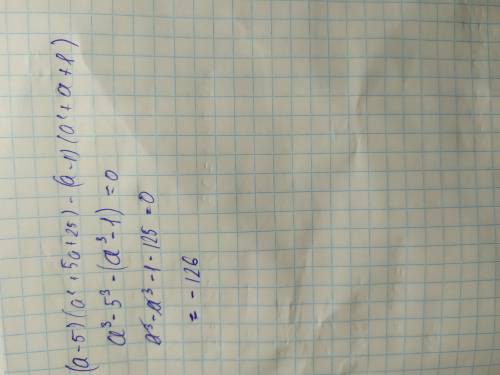 (a-5)(a²+5a+25)-(a-1)(a²+a+1)
a³-5³-(a³-1)=0
a³-a³-1-125=0
=-126